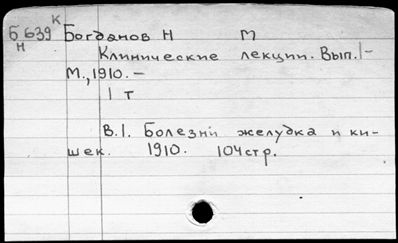 К
Б 639 Богданов Н М
Н
Клинические лекции. Вып. 1-
М., 1910. -
1 т
В.1. Болезни желудка и ки-
шек. 1910. 104 стр.